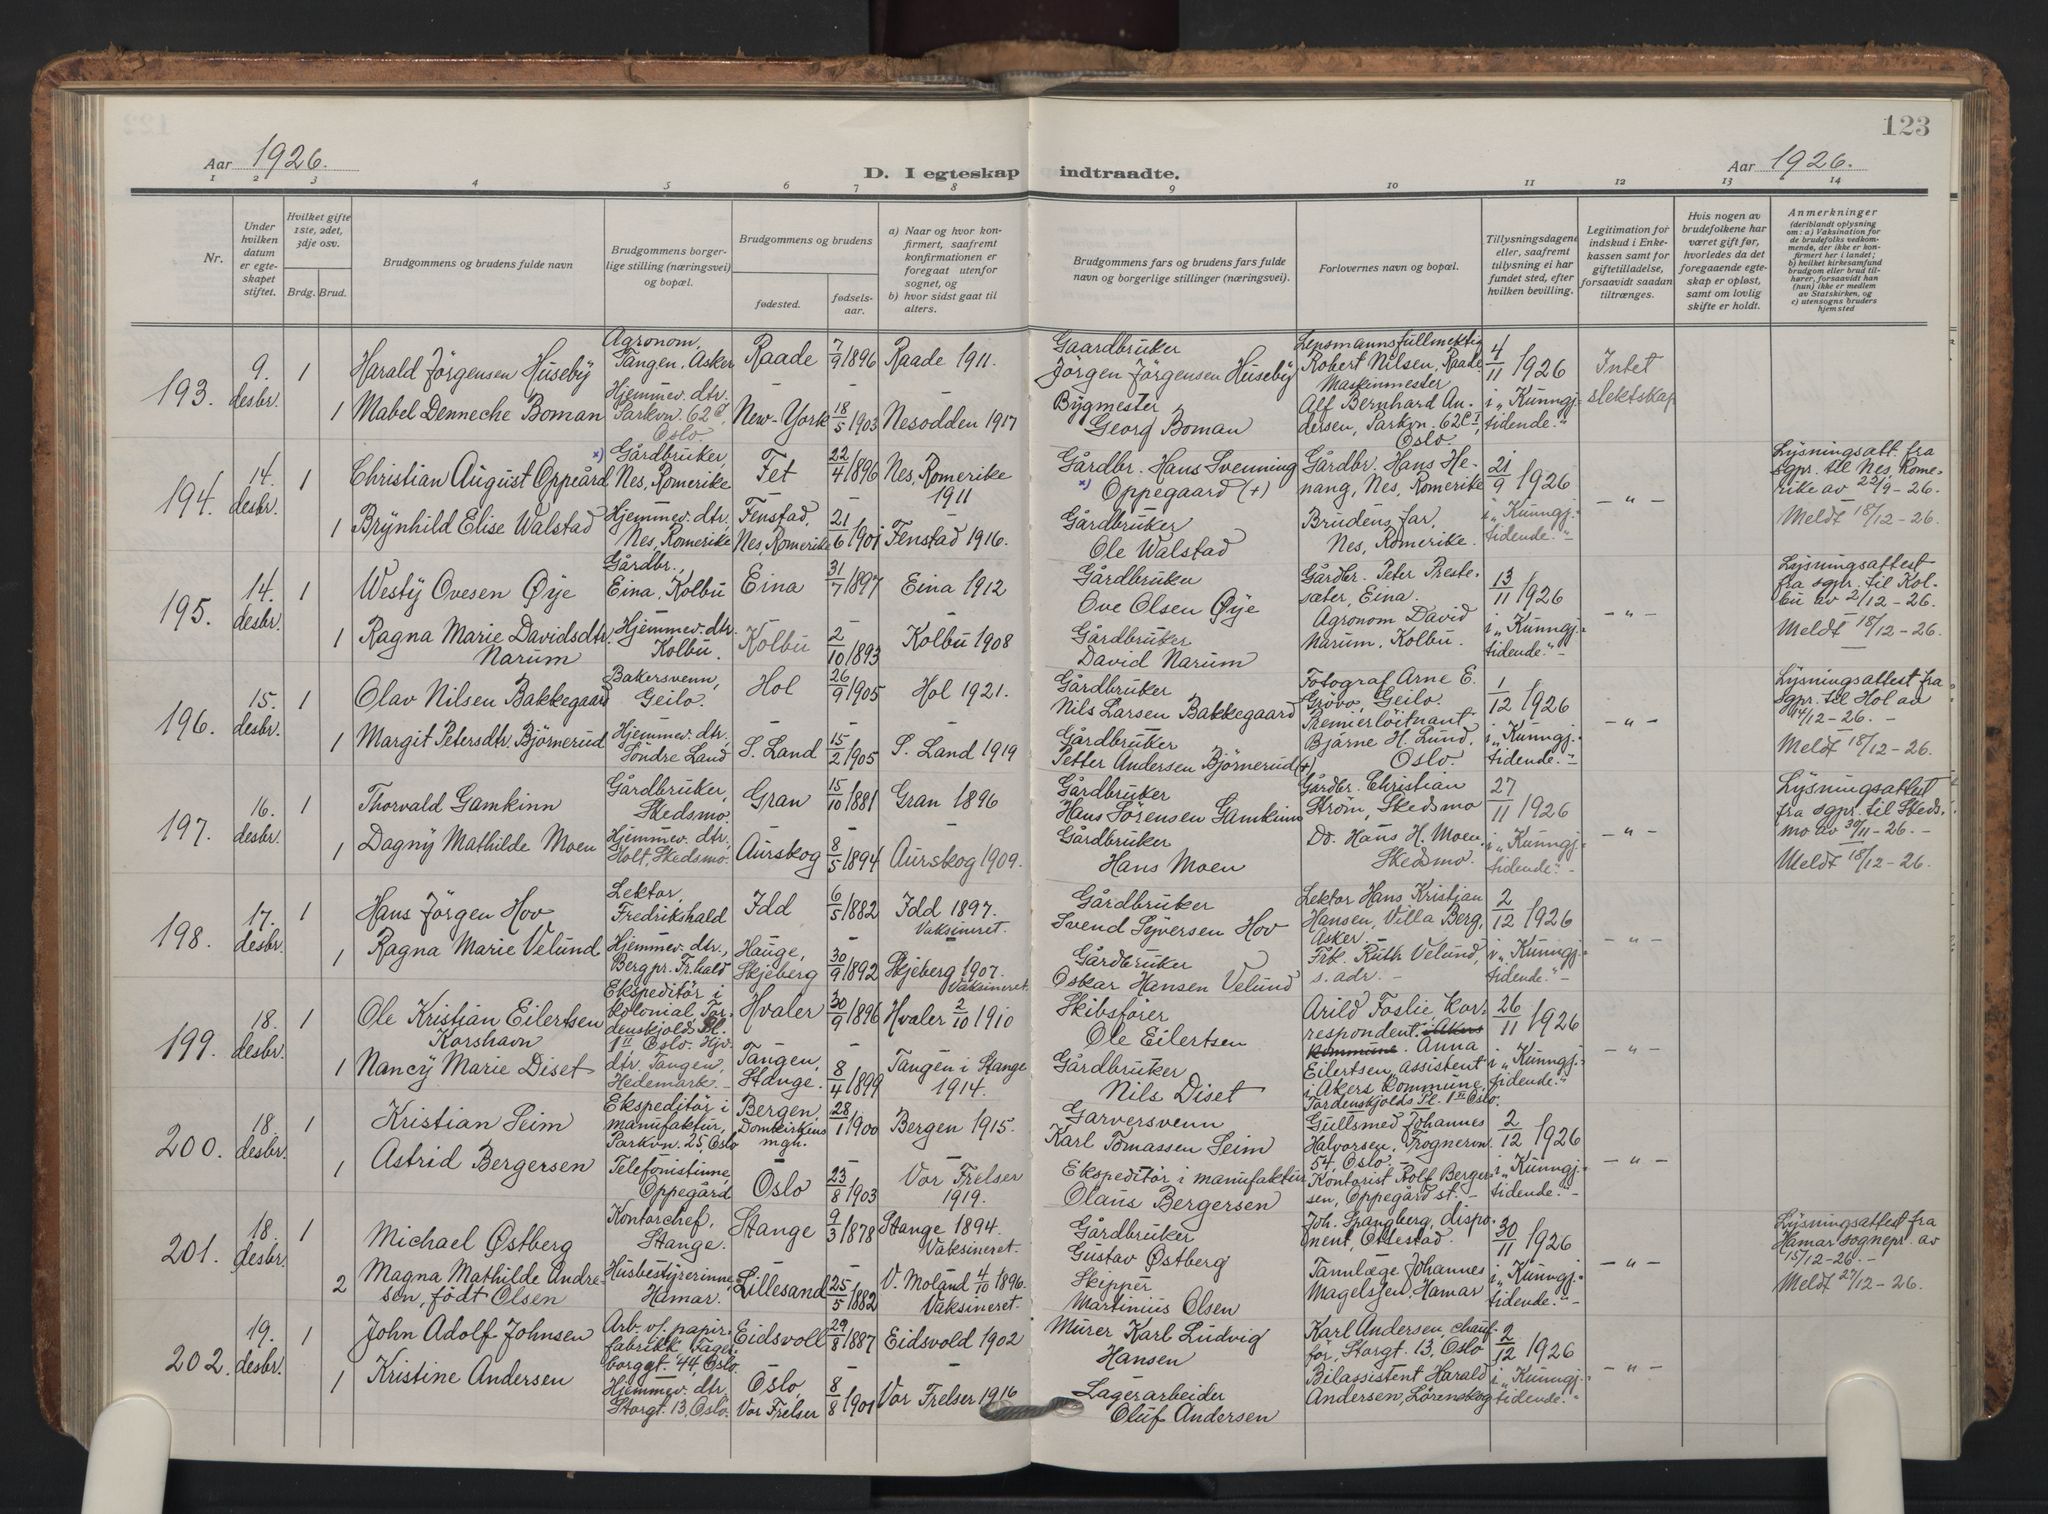 123
Aar 1926.
D. I egteskap indtraadte.
Aar 1926.
1 2 3 4 5 6 7 8 9 10 11 12 13 14
Nr.
Under hvilken datum er egteskapet stiftet.
Hvilket gifte 1ste, 2det, 3dje osv.
Brdg. Brud.
Brudgommens og brudens fulde navn
Brudgommens borgerlige stilling (næringsvei) og bopæl.
Brudgommens og brudens
fødested.
fødselsaar.
a) Naar og hvor konfirmert, saafremt konfirmationen er foregaat utenfor sognet, og
b) hvor sidst gaat til alters.
Brudgommens fars og brudens fars fulde navn og borgerlige stillinger (næringsvei).
Forlovernes navn og bopæl.
Tillysningsdagene eller, saafremt tillysning ei har fundet sted, efter hvilken bevilling.
Legitimation for indskud i Enkekassen samt for giftetilladelse, forsaavidt saadan tiltrænges.
Hvis nogen av brudefolkene har været gift før, hvorledes da det foregaaende egteskap er opløst, samt om lovlig skifte er holdt.
Anmerkninger
(deriblandt oplysning om: a) Vaksination for de brudefolks vedkommende, der ikke er konfirmert her i landet;
b) hvilket kirkesamfund brudgom eller brud tilhører, forsaavidt han (hun) ikke er medlem av Statskirken, og
c) utensogns bruders hjemsted
193.
9. desbr.
1
Harald Jörgensen Huseby
Agronom, Tangen, Asker
Raade
7/9 1896
Raade 1911.
Gaardbruker
Jörgen Jörgensen Huseby
Lensmannsfullmektig
Robert Nilsen, Raade
4/11 1926
Intet slektskap
1
Mabel Denneche Boman
Hjemmev. dtr.
Parkvn. 62 C I, Oslo.
New-York
18/5 1903
Nesodden 1917
Bygmester
Georg Boman
Maskinmester
Alf Bernhard Andersen, Parkvn. 62 C I, Oslo.
i „Kunngj. tidende."
194.
14. desbr.
1
Christian August Oppeård x)
Gårdbruker,
Nes, Romerike
Fet
22/4 1896
Nes, Romerike
1911
Gårdbr. Hans Svenning
x) Oppegaard (+)
Gårdbr. Hans Henang, Nes, Romerike
21/9 1926
– " –
Lysningsatt. fra
sgpr. til Nes, Romerike av 22/9 - 26.
Meldt 18/12 - 26.
1
Brynhild Elise Walstad
Hjemmev. dtr,
Nes, Romerike
Fenstad,
Nes, Romerike
21/6 1901
Fenstad 1916.
Gårdbruker
Ole Walstad
Brudens far,
Nes, Romerike.
i „Kunngj. tidende."
195.
14. desbr.
1
Westy Ovesen Øye
Gårdbr.,
Eina, Kolbu
Eina
31/7 1897
Eina 1912
Gårdbruker
Ove Olsen Øye
Gårdbr. Peter Prestesæter, Eina.
13/11 1926
– " –
Lysningsattest
fra sgpr. til Kolbu av 2/12 - 26.
Meldt 18/12 - 26.
1
Ragna Marie Davidsdtr. Narum
Hjemmev. dtr.
Kolbu.
Kolbu
2/10 1893
Kolbu 1908
Gårdbruker
David Narum
Agronom David
Narum, Kolbu.
i „Kunngj. tidende."
196.
15. desbr.
1
Olav Nilsen Bakkegaard
Bakersvenn,
Geilo.
Hol
26/9 1905
Hol 1921.
Gårdbruker
Nils Larsen Bakkegaard
Fotograf Arne E.
Grovo, Geilo.
1/12 1926
– " –
Lysningsattest fra
sgpr. til Hol av
14/12 - 26. –
Meldt 18/12 - 26.
1
Margit Petersdtr. Björnerud
Hjemmev. dtr.
Söndre Land
S. Land
15/2 1905
S. Land 1919
Gårdbruker
Petter Andersen Björnerud (+)
Premierlöitnant
Bjarne H. Lund,
Oslo.
i „Kunngj. tidende."
197.
16. desbr.
1
Thorvald Gamkinn
Gårdbruker,
Skedsmo.
Gran
15/10 1881
Gran 1896
Gårdbruker
Hans Sörensen Gamkinn
Gårdbr. Christian
Ström, Skedsmo
27/11 1926
– " –
Lysningsattest
fra sgpr. til Skedsmo av 30/11 - 26. –
Meldt 18/12 - 26.
1
Dagny Mathilde Moen
Hjemmev. dtr,
Holt, Skedsmo.
Aurskog
8/5 1894
Aurskog 1909.
Gårdbruker
Hans Moen
Do. Hans H. Moen,
Skedsmo.
i „Kunngj. tidende."
198.
17. desbr.
1
Hans Jörgen Hov
Lektor,
Fredrikshald
Idd
6/5 1882
Idd 1897.
Vaksineret.
Gårdbruker
Svend Syversen Hov
Lektor Hans Kristian
Hansen, Villa Berg,
Asker.
2/12 1926
– " –
1
Ragna Marie Velund
Hjemmev. dtr,
Berg pr. Fr.hald
Hauge,
Skjeberg
30/9 1892
Skjeberg 1907.
Vaksineret.
Gårdbruker
Oskar Hansen Velund
Frk. Ruth Velund,
s. adr. –
i „Kunngj. tidende."
199.
18. desbr.
1
Ole Kristian Eilertsen
Korshavn
Ekspeditör i
kolonial, Tordenskjolds Pl.
1 II Oslo.
Hvaler
30/9 1896
Hvaler 2/10 1910
Skibsfører
Ole Eilertsen
Arild Foslie, korrespondent. i Akers kommune.
26/11 1926
– " –
1
Nancy Marie Diset
Hjv. dtr. Tangen,
Hedemark. –
Tangen,
Stange.
8/4 1899
Tangen i Stange
1914.
Gårdbruker
Nils Diset
Anna
Eilertsen, assistent
i Akers kommune,
Tordenskjolds Pl. 1 II Oslo.
i „Kunngj. tidende."
200.
18. desbr.
1
Kristian Seim
Ekspeditör i
manufaktur,
Parkvn. 25, Oslo
Bergen,
Domkirkens
mgh.
28/1 1900
Bergen 1915.
Garversvenn
Karl Tomassen Seim
Gullsmed Johannes
Halvorsen, Trognervn.
54, Oslo –
2/12 1926
– " –
1
Astrid Bergersen
Telefonistinne,
Oppegård
Oslo
23/8 1903
Vor Frelser
1919.
Ekspeditör i manufaktur
Olaus Bergersen
Kontorist Rolf Bergersen, Oppegård st. –
i „Kunngj. tidende."
201.
18. desbr.
1
Michael Østberg
Kontorchef,
Stange.
Stange
9/3 1878
Stange 1894.
Vaksineret.
Gårdbruker
Gustav Østberg
Joh. Spangberg, disponent, Ottestad.
30/11 1926
– " –
Lysningsattest fra
Hamar sognepr. av
15/12 - 26. –
Meldt 27/12 - 26.
2
Magna Mathilde Andresen, födt Olsen
Husbestyrerinne,
Hamar.
Lillesand
25/5 1882
V. Moland 4/10 1896.
Vaksineret.
Skipper
Martinius Olsen
Tannlæge Johannes
Magelssen, Hamar
i „Kunngj. tidende."
202.
19. desbr.
1
John Adolf Johnsen
Arb. v. papirfabrikk Fagerborggt. 44, Oslo.
Eidsvoll
29/8 1887
Eidsvold 1902
Murer Karl Ludvig
Hansen
Karl Andersen, chaufför, Storgt. 13, Oslo
2/12 1926
– " –
1
Kristine Andersen
Hjemmev. dtr.
Storgt. 13, Oslo.
Oslo,
Vor Frelser
8/8 1901
Vor Frelser 1916
Lagerarbeider
Oluf Andersen
Bilassistent Harald
Andersen, Lörenskog
i „Kunngj. tidende."